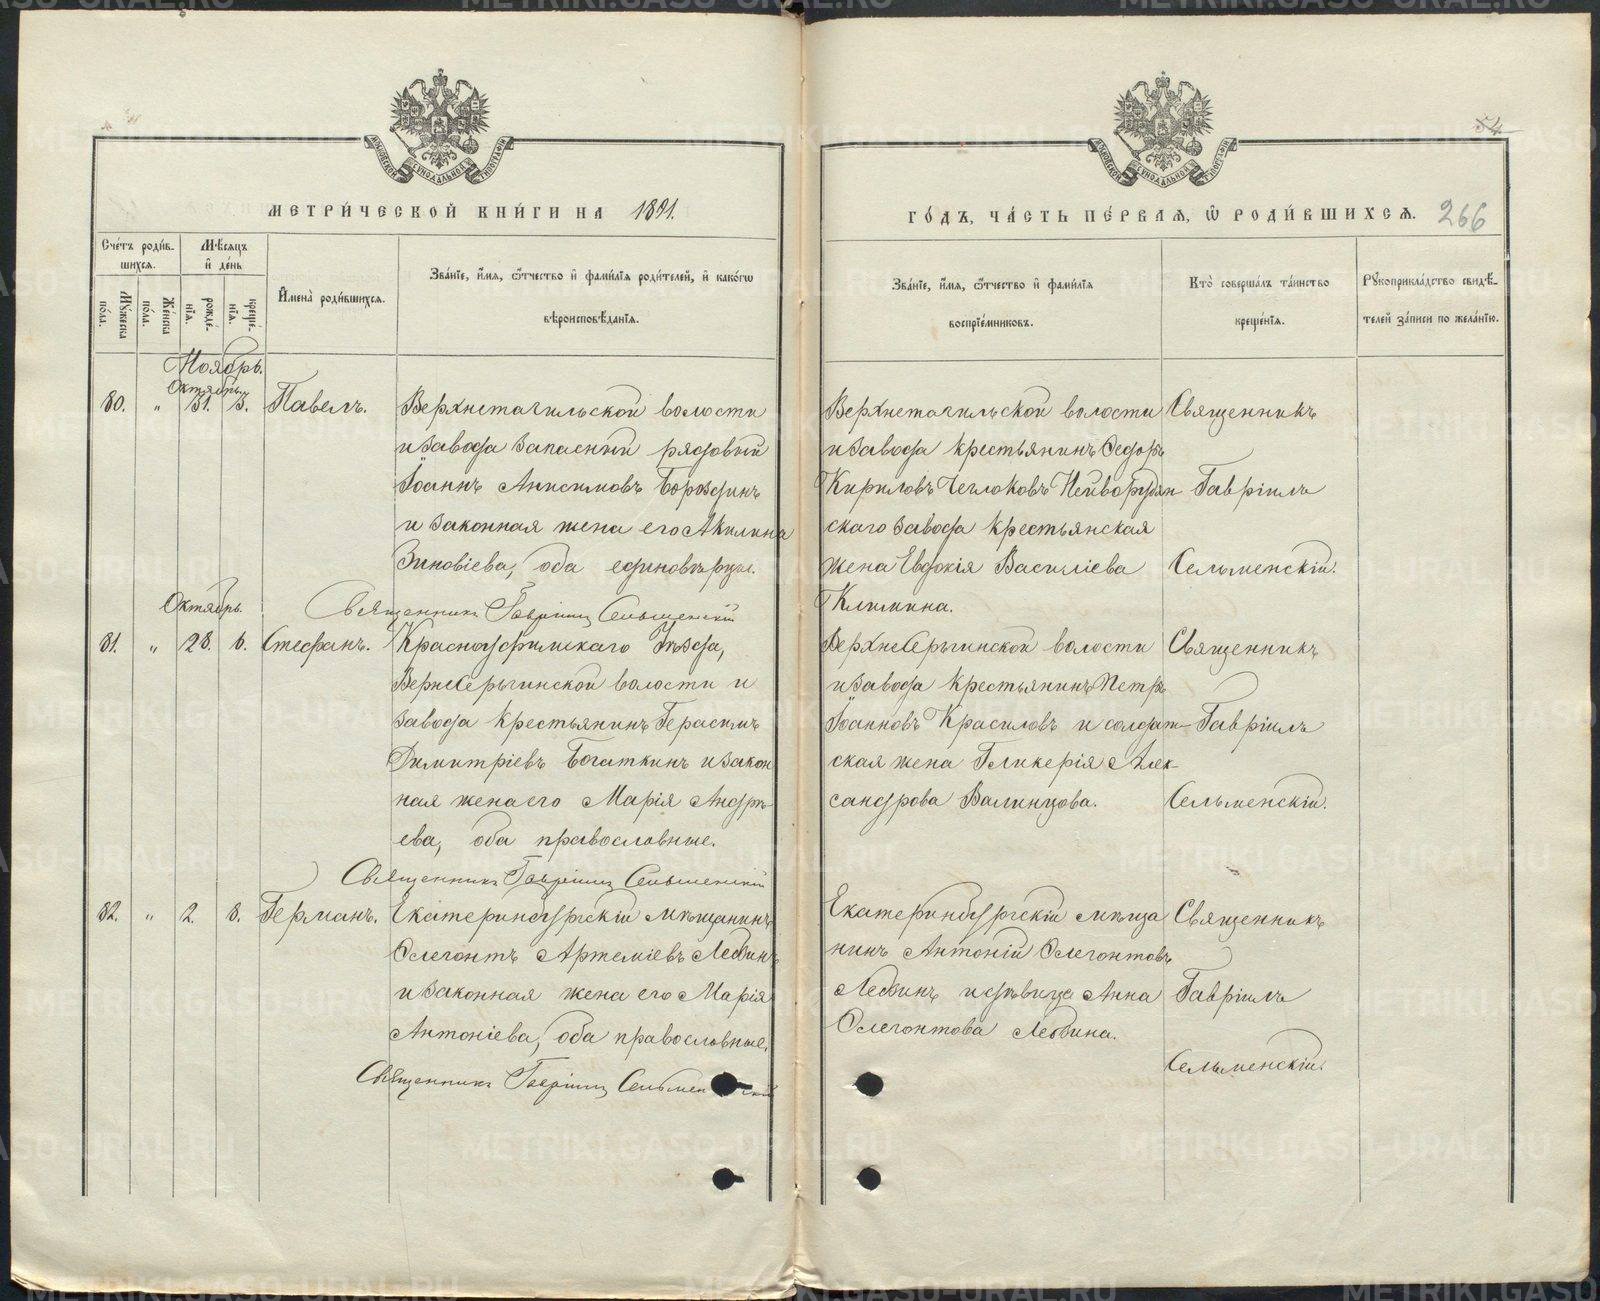 54
МЕТРИ́ЧЕСКОЙ КНИ́ГИ НА 1891.
ГО́ДЪ, ЧА́СТЬ ПЕ́РВАЯ, Ѽ РОДИ́ВШИХСѦ. 266
Сче́тъ роди́в-
шихсѧ.
Мѣ́сѧцъ
и҆ де́нь
Му́жеска
по́ла.
Же́нска
по́ла.
рожде́-
нїѧ.
креще́-
нїѧ.
И҆мена̀ роди́вшихсѧ.
Зва́нїе, и҆́мѧ, ѻ҆́тчество и҆ фами́лїѧ роди́телей, и҆ како́гѡ
вѣроисповѣ́данїѧ.
Зва́нїе, и҆́мѧ, ѻ҆́тчество и҆ фами́лїѧ
воспрїе́мниковъ.
Кто̀ соверша́лъ та́инство
креще́нїѧ.
Рꙋкоприкла́дство свидѣ́-
телей за́писи по жела́нїю.
Ноябрь.
Октябрь.
80. " 31. 3. Павелъ.
Верхнетагильской волости
и завода запасный рядовый
Іоаннъ Анисимовъ Бороздинъ
и законная жена его Акилина
Зиновіева, оба единовѣрцы.
Священникъ Гавріилъ Сельменскій
Верхнетагильской волости
и завода крестьянинъ Ѳедоръ
Кириловъ Чеглоковъ Нейворудян
скаго завода крестьянская
жена Евдокія Василіева
Климина.
Священникъ
Гавріилъ
Сельменскій.
Октябрь.
81. " 28. 6. Стефанъ.
Красноуфимскаго Уѣзда,
Верхнесергинской волости и
завода крестьянинъ Герасимъ
Димитріевъ Богаткинъ и закон
ная жена его Марія Андрѣ-
ева, оба православные.
Священникъ Гавріилъ Сельменскій
Верхнесергинской волости
и завода крестьянинъ Петръ
Іоанновъ Красиловъ и солдат-
ская жена Гликерія Алек-
сандрова Валинцова.
Священникъ
Гавріилъ
Сельменскій.
82. " 2. 8. Германъ.
Екатеринбургскій мѣщанинъ
Флегонтъ Артеміевъ Лебвинъ
и законная жена его Марія
Антоніева, оба православные.
Священникъ Гавріилъ Сельменскій
Екатеринбургскій мѣща
нинъ Антоній Флегонтовъ
и дѣвица Анна
Флегонтова
Священникъ
Гавріилъ
Сельменскій.